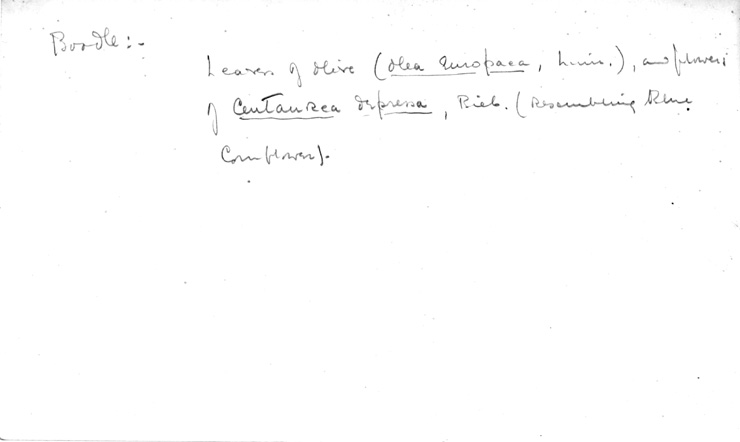 Boodle:-
Leaves of olive (Olea Europaea, Linn.), and flowers
of Centaurea depressa, Bieb. (resembling blue
Cornflower).